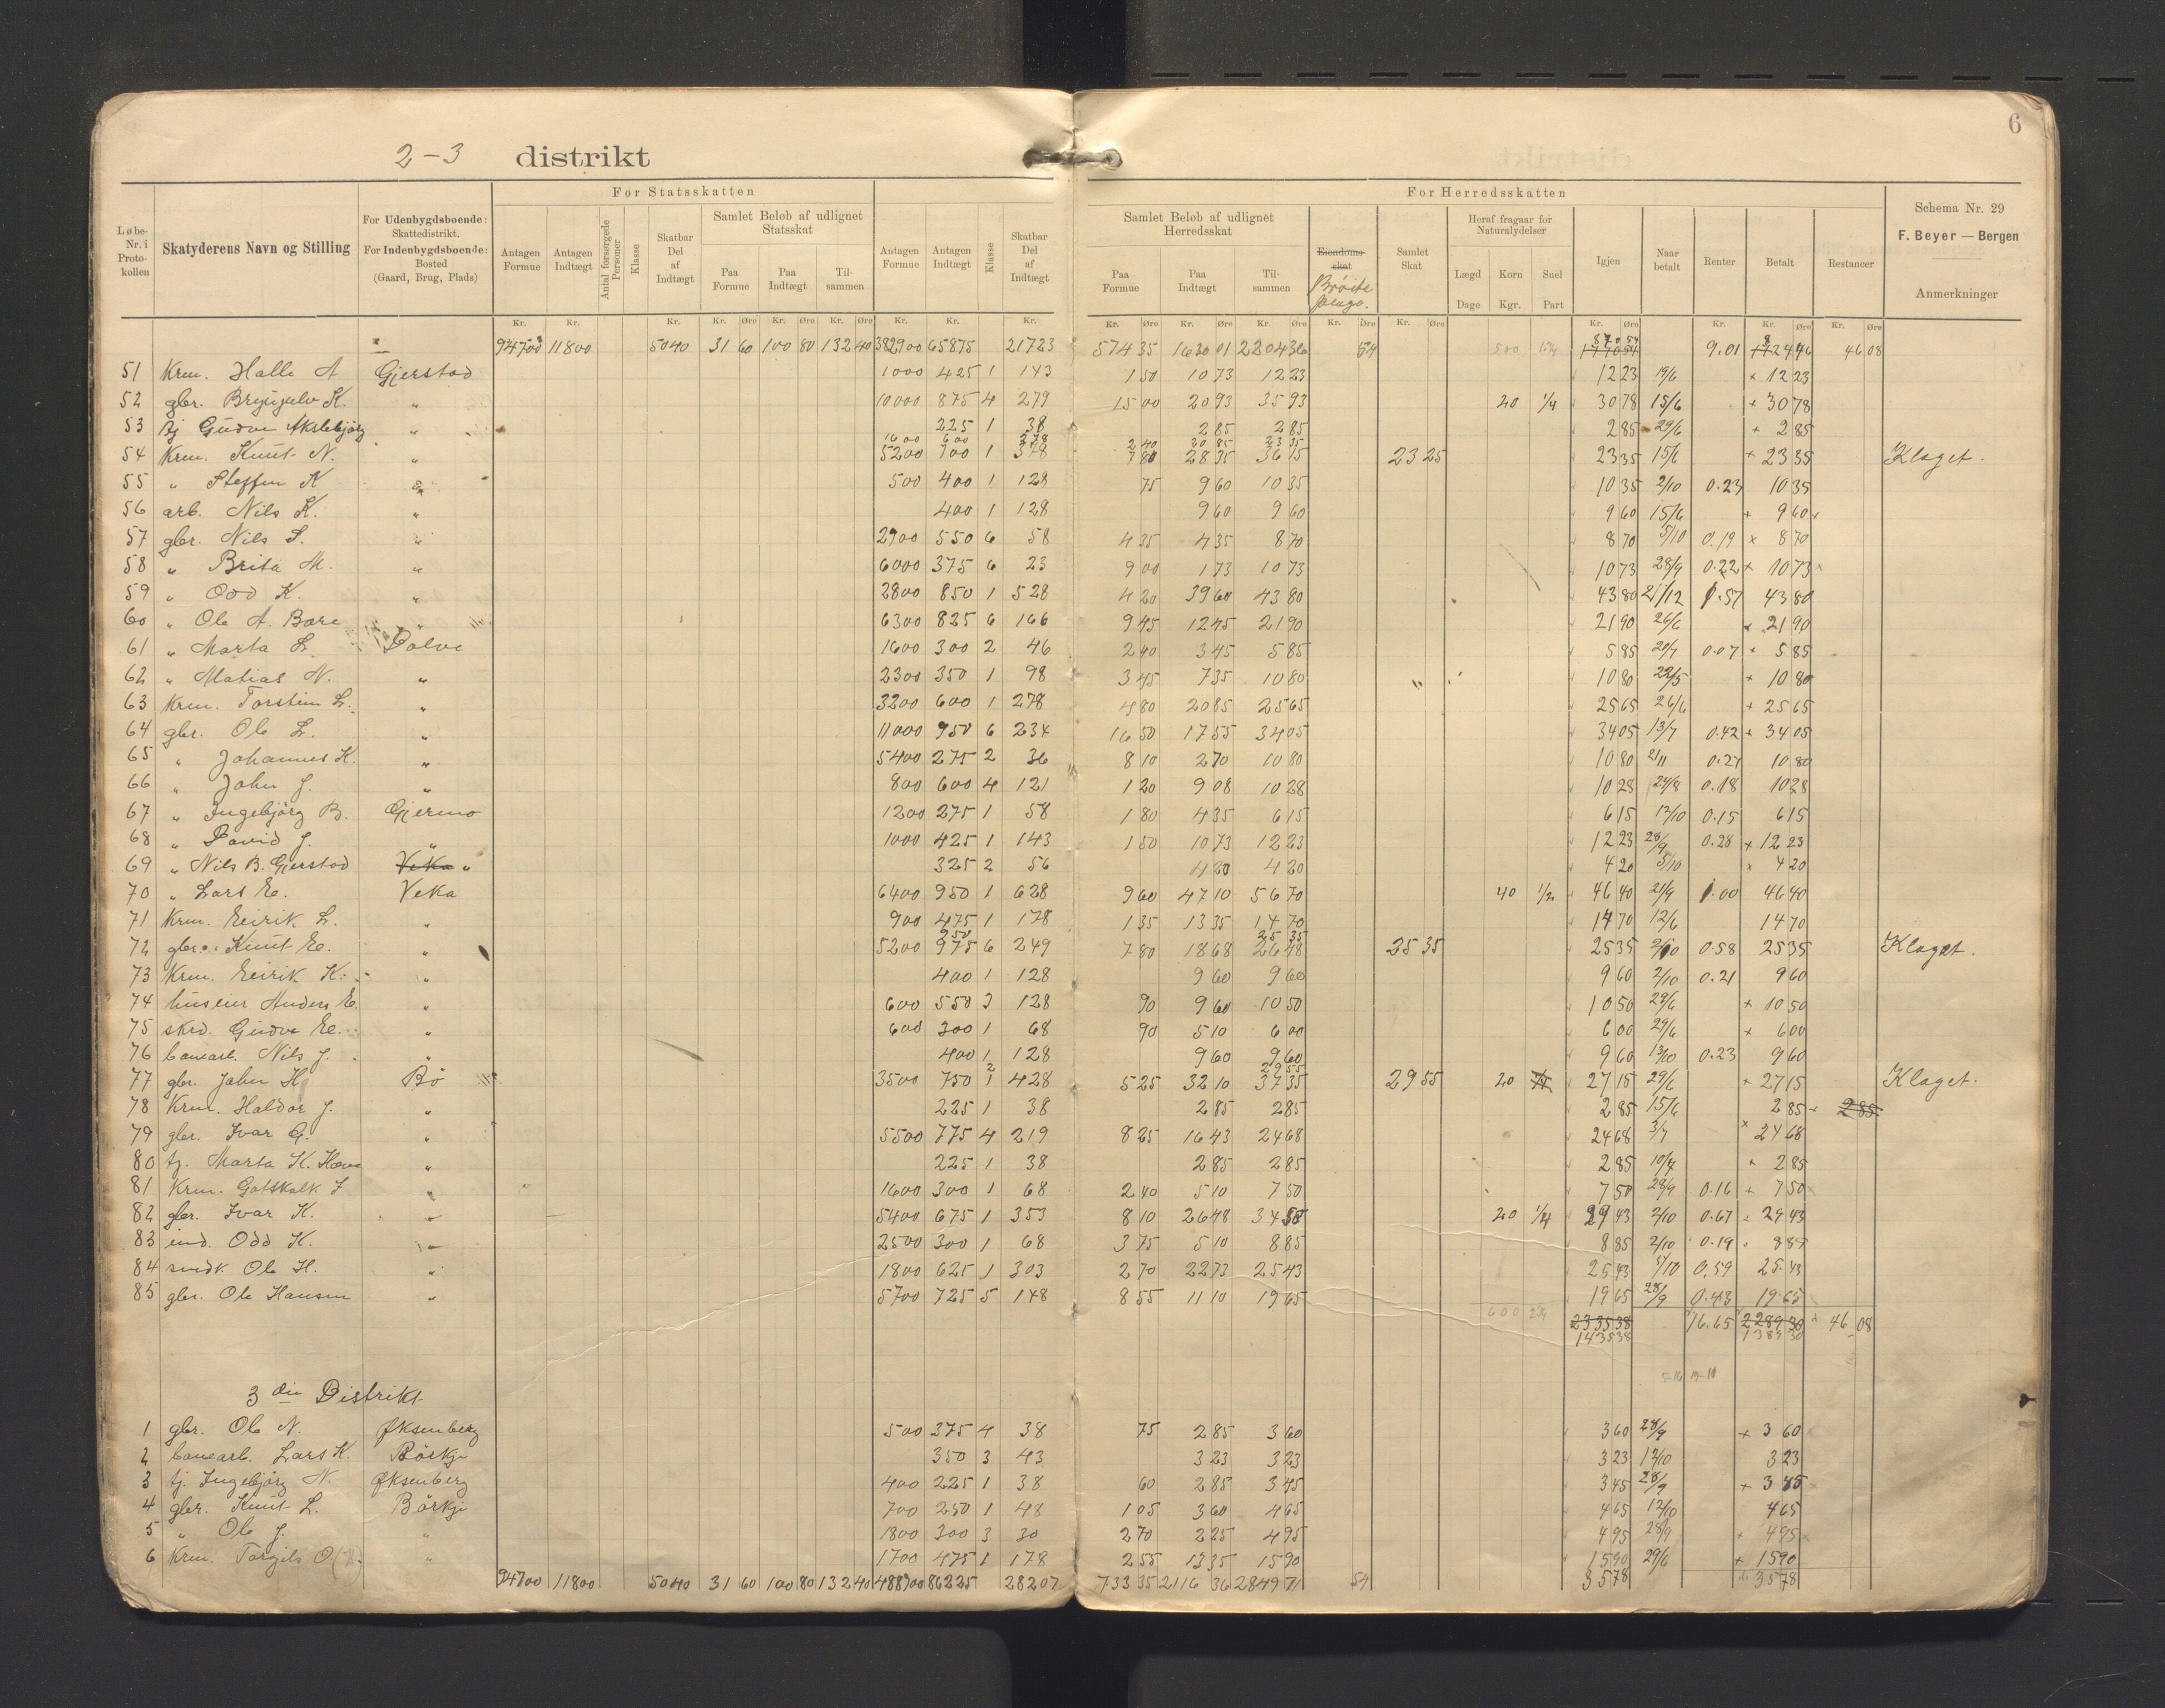 6
2-3 distrikt
For Statsskatten
For Herredsskatten
Løbe-Nr. i Proto-kollen
Skatyderens Navn og Stilling
For Udenbygdsboende: Skattedistrikt. For Indenbygdsboende: Bosted (Gaard, Brug, Plads)
Antagen Formue
Antagen Indtægt
Antal forsørgede Personer
Klasse
Skatbar Del af Indtægt
Samlet Beløb af udlignet Statsskat
Paa Formue
Paa Indtægt
Til-sammen
Antagen Formue
Antagen Indtægt
Klasse
Skatbar Del af Indtægt
Samlet Beløb af udlignet Herredsskat
Paa Formue
Paa Indtægt
Til-sammen
Eiendoms-skat
Samlet Skat
Heraf fragaar for Naturalydelser
Lægd Dage
Korn Kgr.
Snel Part
Igjen
Naar betalt
Renter
Betalt
Restancer
Schema Nr. 29
F. Beyer — Bergen
Anmerkninger
94700 11800 5040 31 60 100 80 132 40 382900 65875 21723 574 35 1630 01 2204 36 54 500 9.01 46 08
51 Krm. Halle A Gjerstad 1000 425 1 143 1 50 10 73 12 23 12 23 19/6 12 23
52 gbr. Brynjulv K. " 10000 875 4 279 15 00 20 93 35 93 20 1/4 30 78 15/6 30 78
53 tj Gudve " 225 1 38 2 85 2 85 2 85 29/6 2 85
1600 600 278 2 40 20 85 23 35
54 Krm. Knut N. " 5200 700 1 378 7 80 28 35 36 15 23 25 23 35 15/6 23 35 Klaget.
55 " Steffen K " 500 400 1 128 75 9 60 10 35 10 35 2/10 0.23 10 35
56 arb. Nils K. " 400 1 128 9 60 9 60 9 60 15/6 9 60
57 gbr. Nils S. " 2900 550 6 58 4 35 4 35 8 70 8 70 5/10 0.19 8 70
58 " Brita M. " 6000 375 6 23 9 00 1 73 10 73 10 73 28/9 0.22 10 73
59 " Odd K. " 2800 850 1 528 4 20 39 60 43 80 43 80 21/12 1.57 43 80
60 " Ole A. Bare " 6300 825 6 166 9 45 12 45 21 90 21 90 26/6 21 90
61 " Marta L. Dolve 1600 300 2 46 2 40 3 45 5 85 5 85 20/7 0.07 5 85
62 " Matias N. " 2300 350 1 98 3 45 7 35 10 80 10 80 22/5 10 80
63 Krm. Torstein L. " 3200 600 1 278 4 80 20 85 25 65 25 65 26/6 25 65
64 gbr. Ole L. " 11000 950 6 234 16 50 17 55 34 05 34 05 13/7 0.42 34 05
65 " Johannes K. " 5400 275 2 36 8 10 2 70 10 80 10 80 2/11 0.27 10 80
66 " John J. " 800 600 4 121 1 20 9 08 10 28 10 28 24/8 0.18 10 28
67 " Ingebjörg B. Gjermo 1200 275 1 58 1 80 4 35 6 15 6 15 12/10 0.15 6 15
68 " David J. " 1000 425 1 143 1 50 10 73 12 23 12 23 28/9 0.28 12 23
69 " Nils B. Gjerstad Veka " 325 2 56 4 20 4 20 4 20 5/10 4 20
70 " Lars E. Veka 6400 950 1 628 9 60 47 10 56 70 40 1/2 46 40 21/9 1.00 46 40
71 Krm. Eirik L. " 900 475 1 178 1 35 13 35 14 70 14 70 12/6 14 70
950 25 35
72 gbr. Knut E. " 5200 975 6 249 7 80 18 68 26 48 25 35 25 35 2/10 0.58 25 35 Klaget.
73 Krm. Eirik K. " 400 1 128 9 60 9 60 9 60 2/10 0.21 9 60
74 huseier Anders E. " 600 550 3 128 90 9 60 10 50 10 50 29/6 10 50
75 skrd. Gudve E. " 600 300 1 68 90 5 10 6 00 6 00 29/6 6 00
76 banearb. Nils J. " 400 1 128 9 60 9 60 9 60 13/10 0.23 9 60
2 29 55
77 gbr. John H Bö 3500 750 1 428 5 25 32 10 37 35 29 55 20 27 15 29/6 27 15 Klaget.
78 Krm. Haldor J. " 225 1 38 2 85 2 85 2 85 15/6 2 85 2 85
79 gbr. Ivar G. " 5500 775 4 219 8 25 16 43 24 68 24 68 3/7 24 68
80 tj. Marta K. " 225 1 38 2 85 2 85 2 85 10/4 2 85
81 Krm. Gotskalk J " 1600 300 1 68 2 40 5 10 7 50 7 50 28/9 0.16 7 50
82 gbr. Ivar K. " 5400 675 1 353 8 10 26 48 34 58 20 1/4 29 43 2/10 0.67 29 43
83 ind. Odd K. " 2500 300 1 68 3 75 5 10 8 85 8 85 2/10 0.19 8 85
84 smdk. Ole H. " 1800 625 1 303 2 70 22 73 25 43 25 43 5/10 0.59 25.43
85 gbr. Ole Hansen " 5700 725 5 148 8 55 11 10 19 65 19 65 28/9 0.43 19 65
600 2335 38 16.65 2289 30 46.08
1435 38 1389 30
3die Distrikt
1 gbr. Ole N. Øksenberg 500 375 4 38 75 2 85 3 60 3 60 28/9 3 60
2 banearb. Lars K. Börkje 350 3 43 3 23 3 23 3 23 12/10 3 23
3 tj. Ingebjörg N. Øksenberg 400 225 1 38 60 2 85 3 45 3 45 28/9 3 45
4 gbr. Knut L. Börkje 700 250 1 48 1 05 3 60 4 65 4 65 12/10 4 65
5 " Ole J. " 1800 300 3 30 2 70 2 25 4 95 4 95 28/9 4 95
6 Krm. Torgils O " 1700 475 1 178 2 55 13 35 15 90 15 90 29/6 15 90
94700 11800 5040 31 60 100 80 132 40 488900 86225 28207 733 35 2116 36 2849 71 54 35 78 35 78